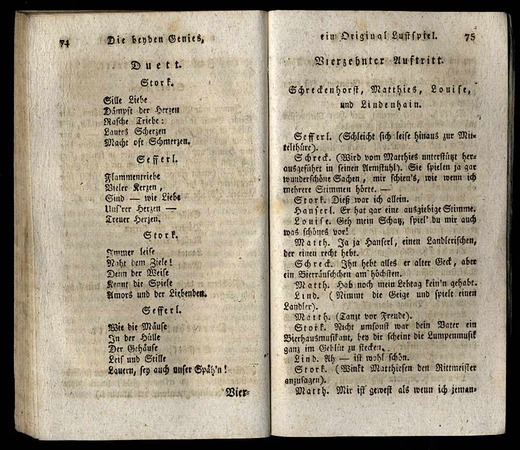 74 Die beyden Genies,
Duett.
Stork.
Stille Liebe
Dämpft der Herzen
Rasche Triebe:
Lautes Scherzen
Macht oft Schmerzen.
Sefferl.
Flammentriebe
Vieler Kerzen,
Sind — wie Liebe
Uns'rer Herzen —
Treuer Herzen.
Stork.
Immer leise
Naht dem Ziele!
Denn der Weise
Kennt die Spiele
Amors und der Liebenden.
Sefferl.
Wie die Mäuse
In der Hülle
Der Gehäuse
Leis und Stille
Lauern, sey auch unser Späh'n!
Vier-
ein Original Lustspiel. 75
Vierzehnter Auftritt.
Schreckenhorst, Matthies, Louise,
und Lindenhain.
Sefferl. (Schleicht sich leise hinaus zur Mit-
telthüre).
Schreck. (Wird vom Matthies unterstützt her-
ausgeführt in seinen Armstuhl). Sie spielen ja gar
wunderschöne Sachen, mir schien's, wie wenn ich
mehrere Stimmen hörte. —
Stork. Dieß war ich allein.
Hanserl. Er hat gar eine ausgiebige Stimme.
Louise. Geh mein Schatz, spiel' du mir auch
was schönes vor!
Matth. Ja ja Hanserl, einen Landlerischen,
der einen recht hebt.
Schreck. Ihn hebt alles er alter Geck, aber
ein Bierräuschchen am höchsten.
Matth. Hab noch mein Lebtag kein'n gehabt.
Lind. (Nimmt die Geige und spielt einen
Landler).
Matth. (Tanzt vor Freude).
Stork. Nicht umsonst war dein Vater ein
Bierhausmusikant, bey dir scheint die Lumpenmusik
ganz im Geblüt zu stecken.
Lind. Ah — ist wohl schön.
Stork. (Winkt Matthiesen den Rittmeister
anzusagen).
Matth. Mir ist gewest als wenn ich jeman-